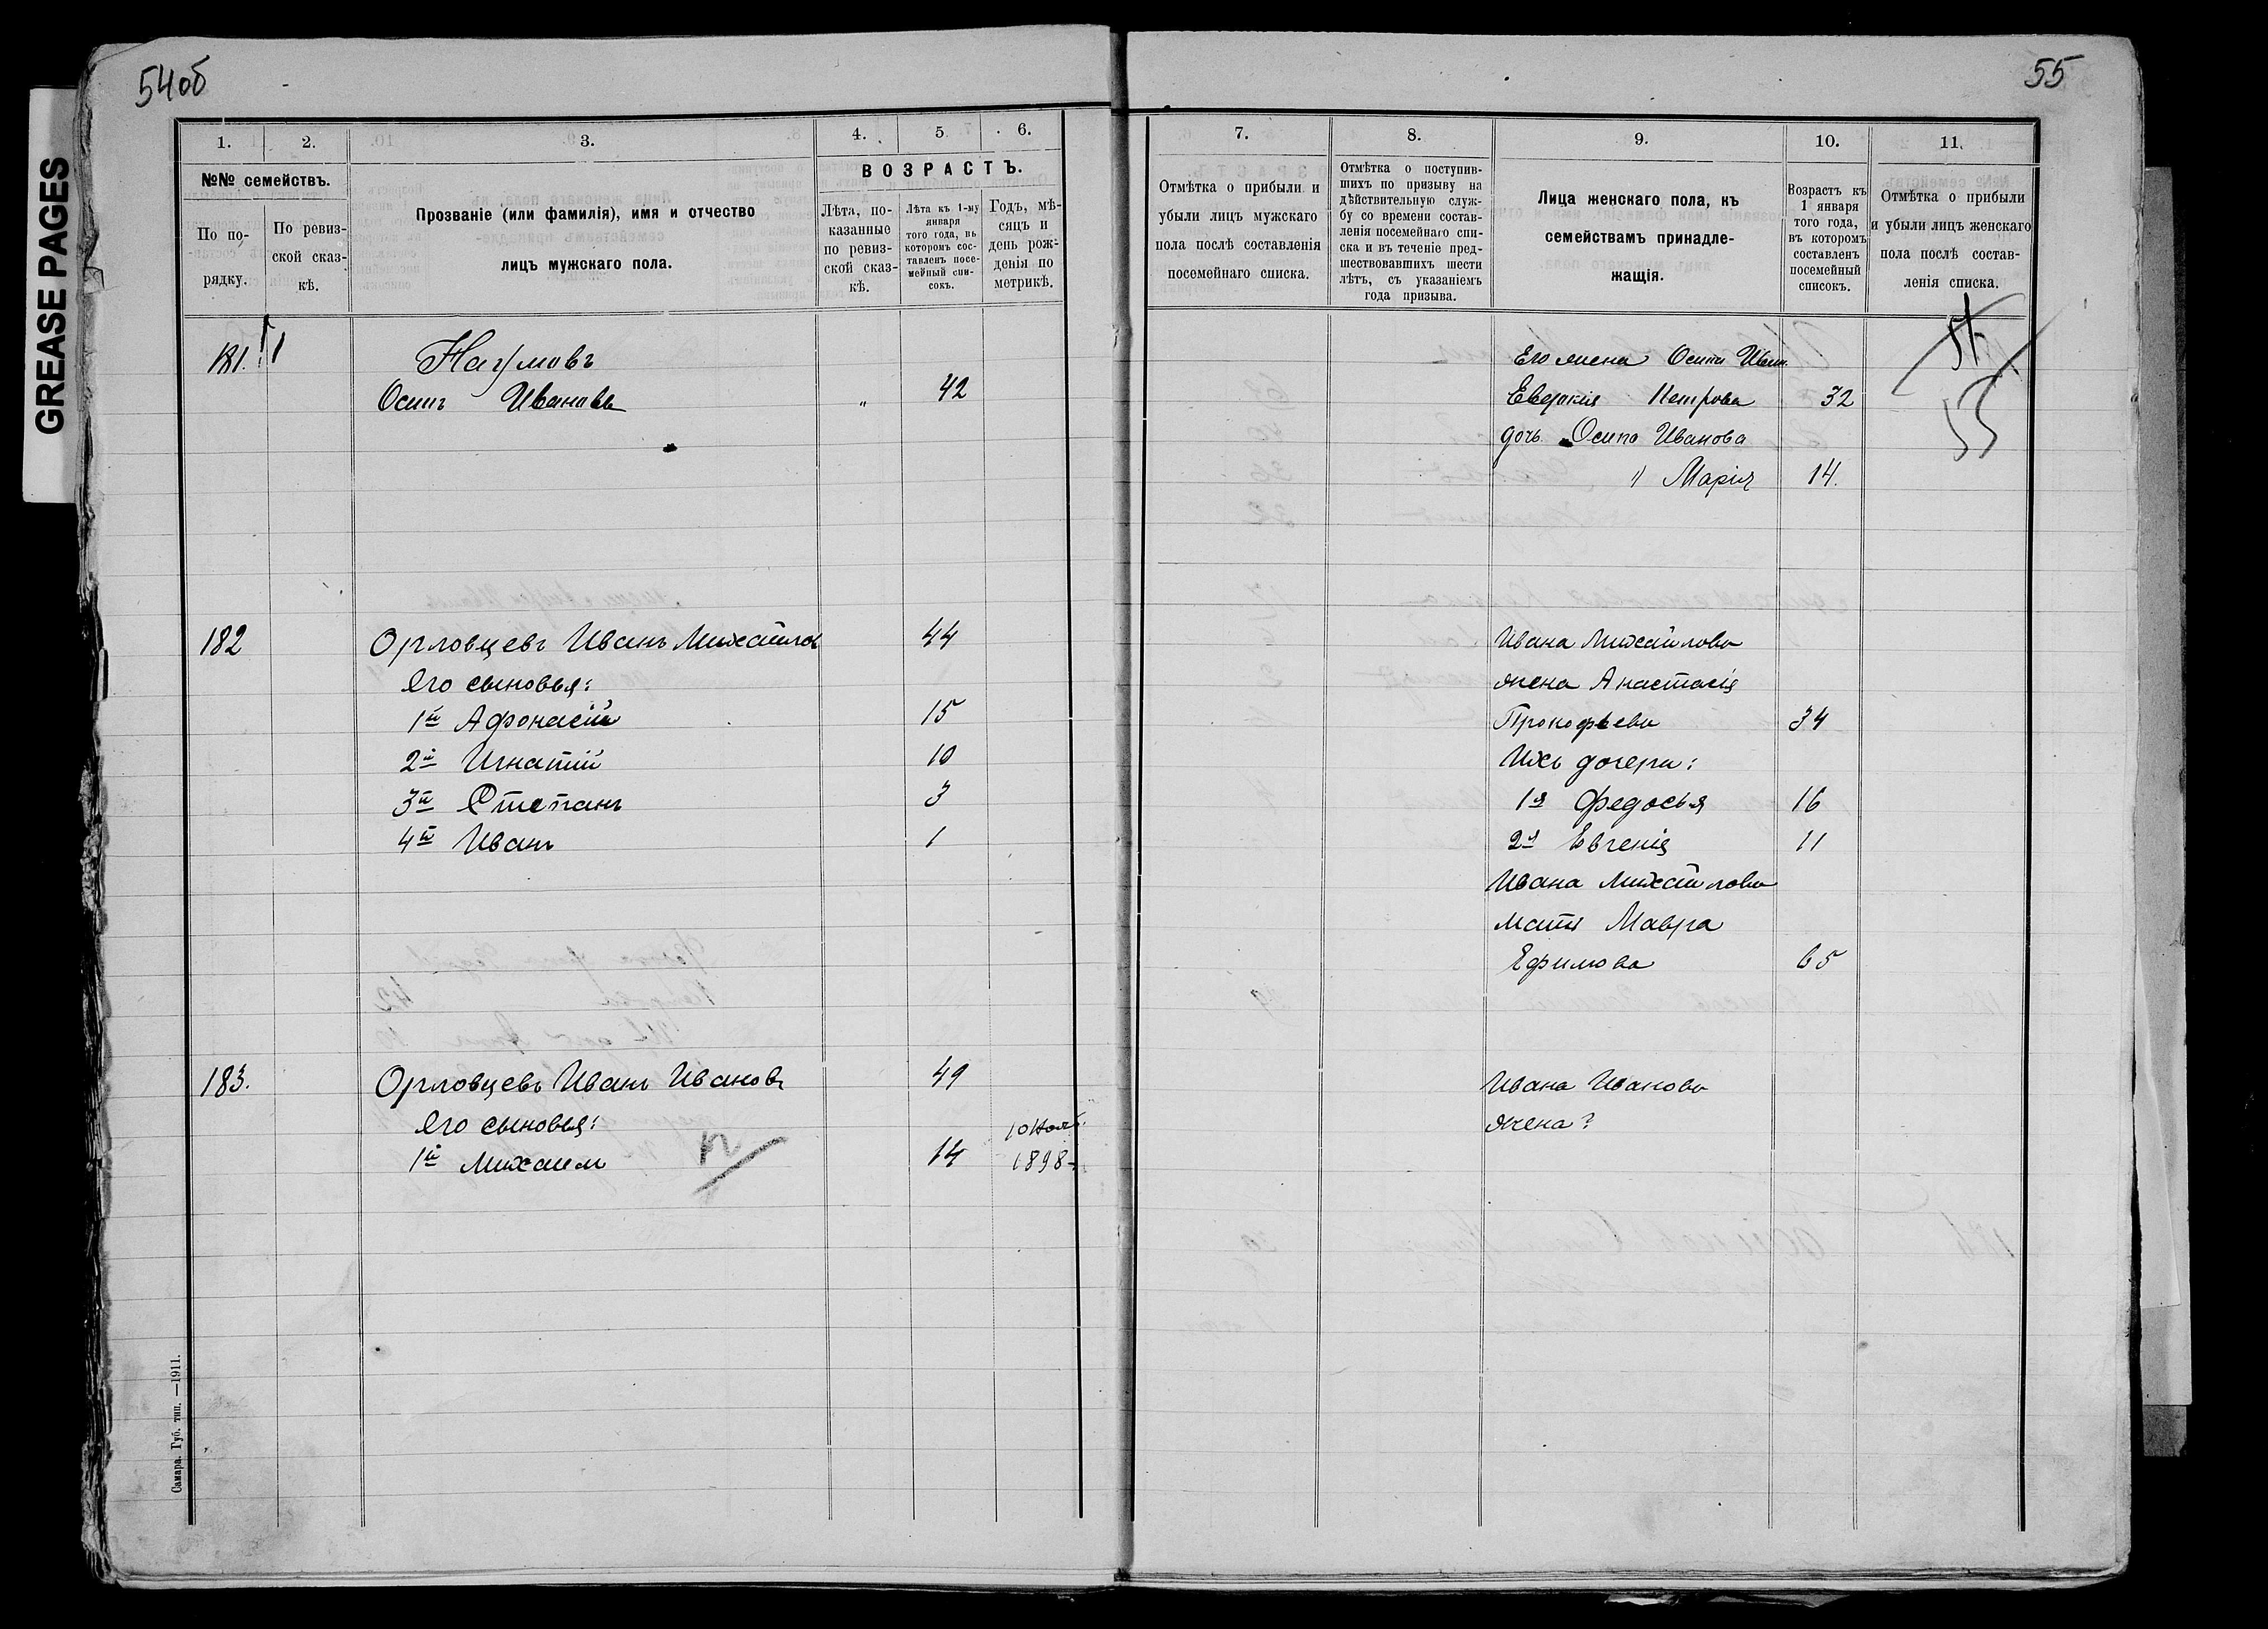 54об
55
GREASE PAGES
1.
2.
3.
4.
5
6.
№№ семействъ.
По по-
рядку.
По ревиз-
ской сказ-
кѣ.
Прозваніе (или фамилія), имя и отчество
лицъ мужскаго пола.
ВОЗРАСТЪ.
Лѣта, по-
казанные
по ревиз-
ской сказ-
кѣ.
Лѣта къ 1-му
января
того года, въ
которомъ сос-
тавленъ посе-
мейный спи-
сокъ.
Годъ, мѣ-
сяцъ и
день рож-
денія по
метрикѣ.
7.
8.
9.
10.
11.
Отмѣтка о прибыли и
убыли лицъ мужскаго
пола послѣ составленія
посемейнаго списка.
Отмѣтка о поступив-
шихъ по призыву на
дѣйствительную служ-
бу со времени состав-
ленія посемейнаго спи-
ска и въ теченіе пред-
шествовавшихъ шести
лѣтъ, съ указаніемъ
года призыва.
Лица женскаго пола, къ
семействамъ принадле-
жащія.
Возрастъ къ
1 января
того года,
въ которомъ
составленъ
посемейный
списокъ.
Отмѣтка о прибыли
и убыли лицъ женскаго
пола послѣ состав-
ленія списка.
181.
Наумовъ
Осипъ Ивановъ „ 42
Его жена Осипа Иван.
Евдокия Петрова 32
дочь Осипа Иванова
" Марія 14.
54
55
182 Орловцевъ Иванъ Михайлов 44
Его сыновья:
1й Афонасій 15
2й Игнатій 10
3й Степанъ 3
4й Иванъ 1
Ивана Михайлова
жена Анастасія
Прокофьева 34
Ихъ дочери:
1я Федосья 16
2я Евгенія 11
Ивана Михайлова
мать Мавра
Ефимова 65
183. Орловцевъ Иванъ Ивановъ 49
Его сыновья:
1й Михаилъ 14 10 Нояб. 1898
Ивана Иванова
жена?
Самара. Губ. тип. —1911.